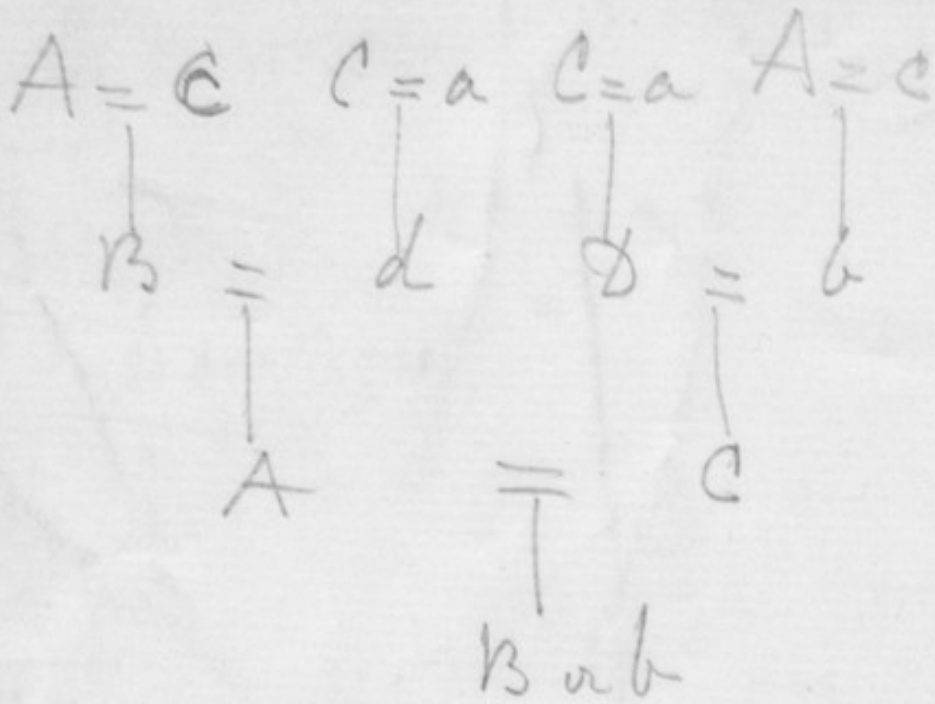 A = c C = a C = a A = c
B = d D = b
A = C
B or b